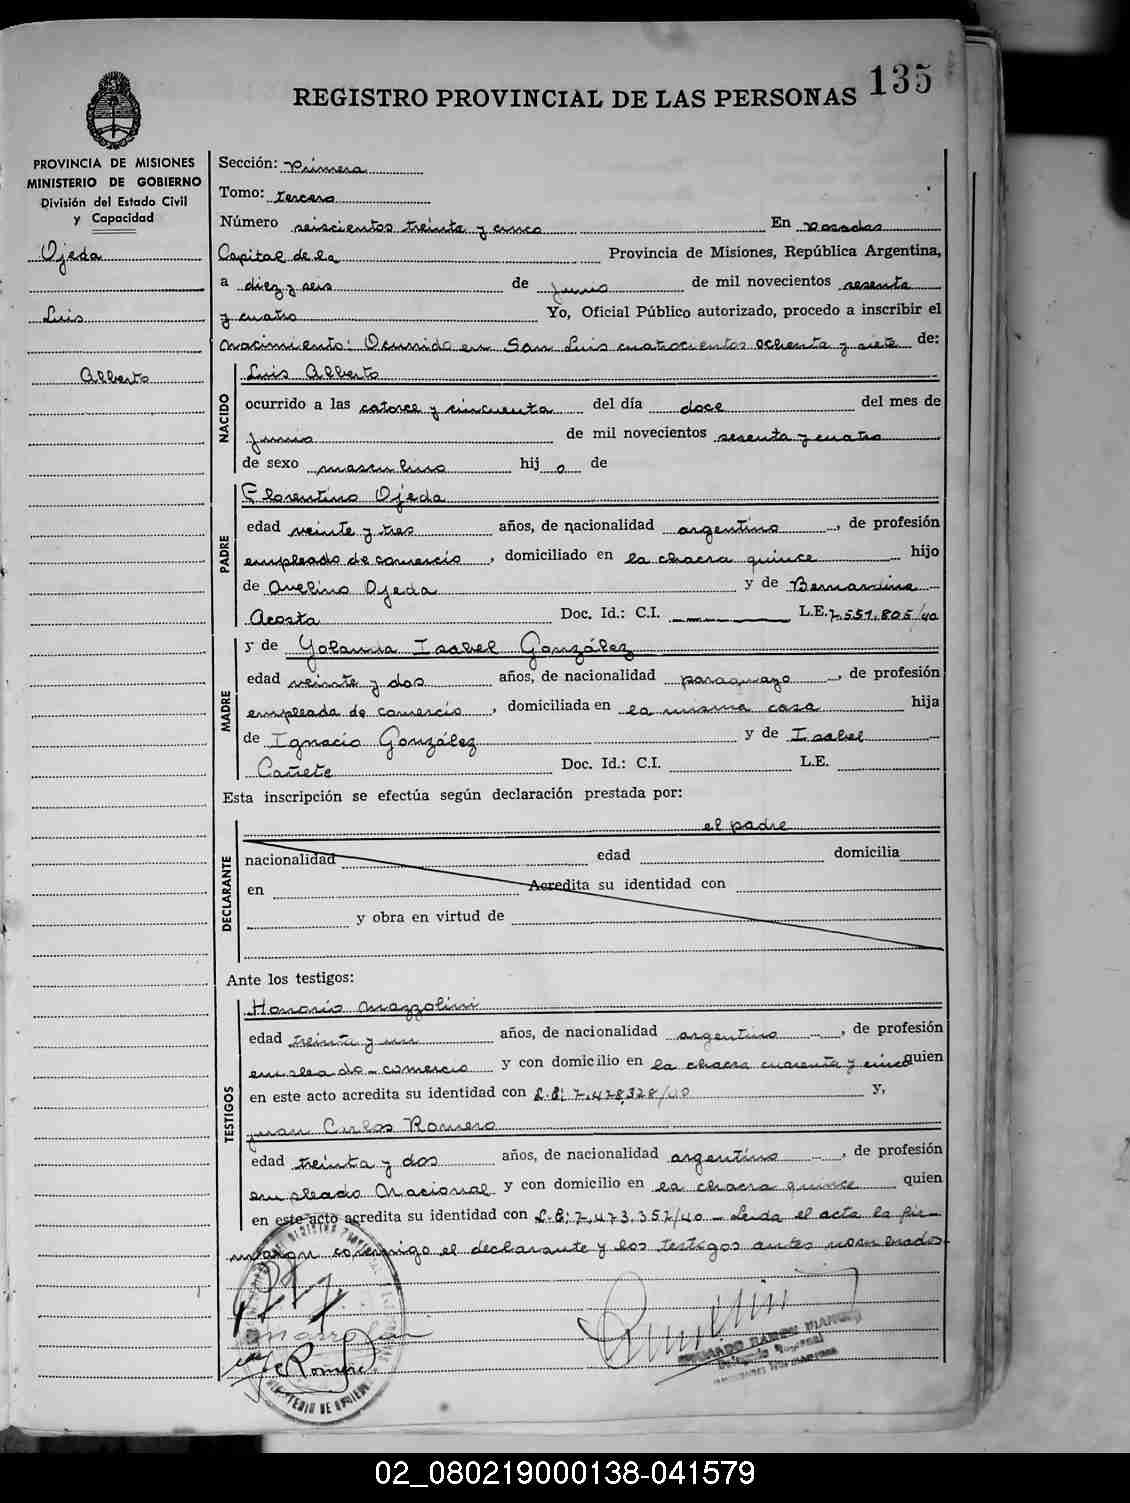 135
REGISTRO PROVINCIAL DE LAS PERSONAS
PROVINCIA DE MISIONES
MINISTERIO DE GOBIERNO
División del Estado Civil
y Capacidad
Ojeda
Luis
Alberto
Sección: Primera
Tomo: tercero
Número seiscientos treinta y cinco En Posadas
Capital de la Provincia de Misiones, República Argentina,
a diez y seis de junio de mil novecientos sesenta
y cuatro Yo, Oficial Público autorizado, procedo a inscribir el
nacimiento: Ocurrido en San Luis cuatrocientos ochenta y siete de:
NACIDO
Luis Alberto
ocurrido a las catorce y cincuenta del día doce del mes de
junio de mil novecientos sesenta y cuatro
de sexo masculino hij o de
PADRE
Florentino Ojeda
edad veinte y tres años, de nacionalidad argentino, de profesión
empleado de comercio, domiciliado en la chacra quince hijo
de Avelino Ojeda y de Bernardina
Acosta Doc. Id.: C.I. L.E. 7.551.805/40
MADRE
y de Yolanda Isabel González
edad veinte y dos años, de nacionalidad paraguayo, de profesión
empleada de comercio, domiciliada en la misma casa hija
de Ignacio González y de Isabel
Cañete Doc. Id.: C.I. L.E.
Esta inscripción se efectúa según declaración prestada por:
DECLARANTE
el padre
nacionalidad edad domicilia
en Acredita su identidad con
y obra en virtud de
Ante los testigos:
TESTIGOS
Honorio Mazzolini
edad treinta y un años, de nacionalidad argentino, de profesión
empleado-comercio y con domicilio en la chacra cuarenta y cinco quien
en este acto acredita su identidad con L.E: 7.478.328/40 y,
Juan Carlos Romero
edad treinta y dos años, de nacionalidad argentino, de profesión
empleado Nacional y con domicilio en la chacra quince quien
en este acto acredita su identidad con L.E: 7.473.357/40 - Leida el acta la fir-
maron conmigo el declarante y los testigos antes nombrados.
Romero
02_080219000138-041579